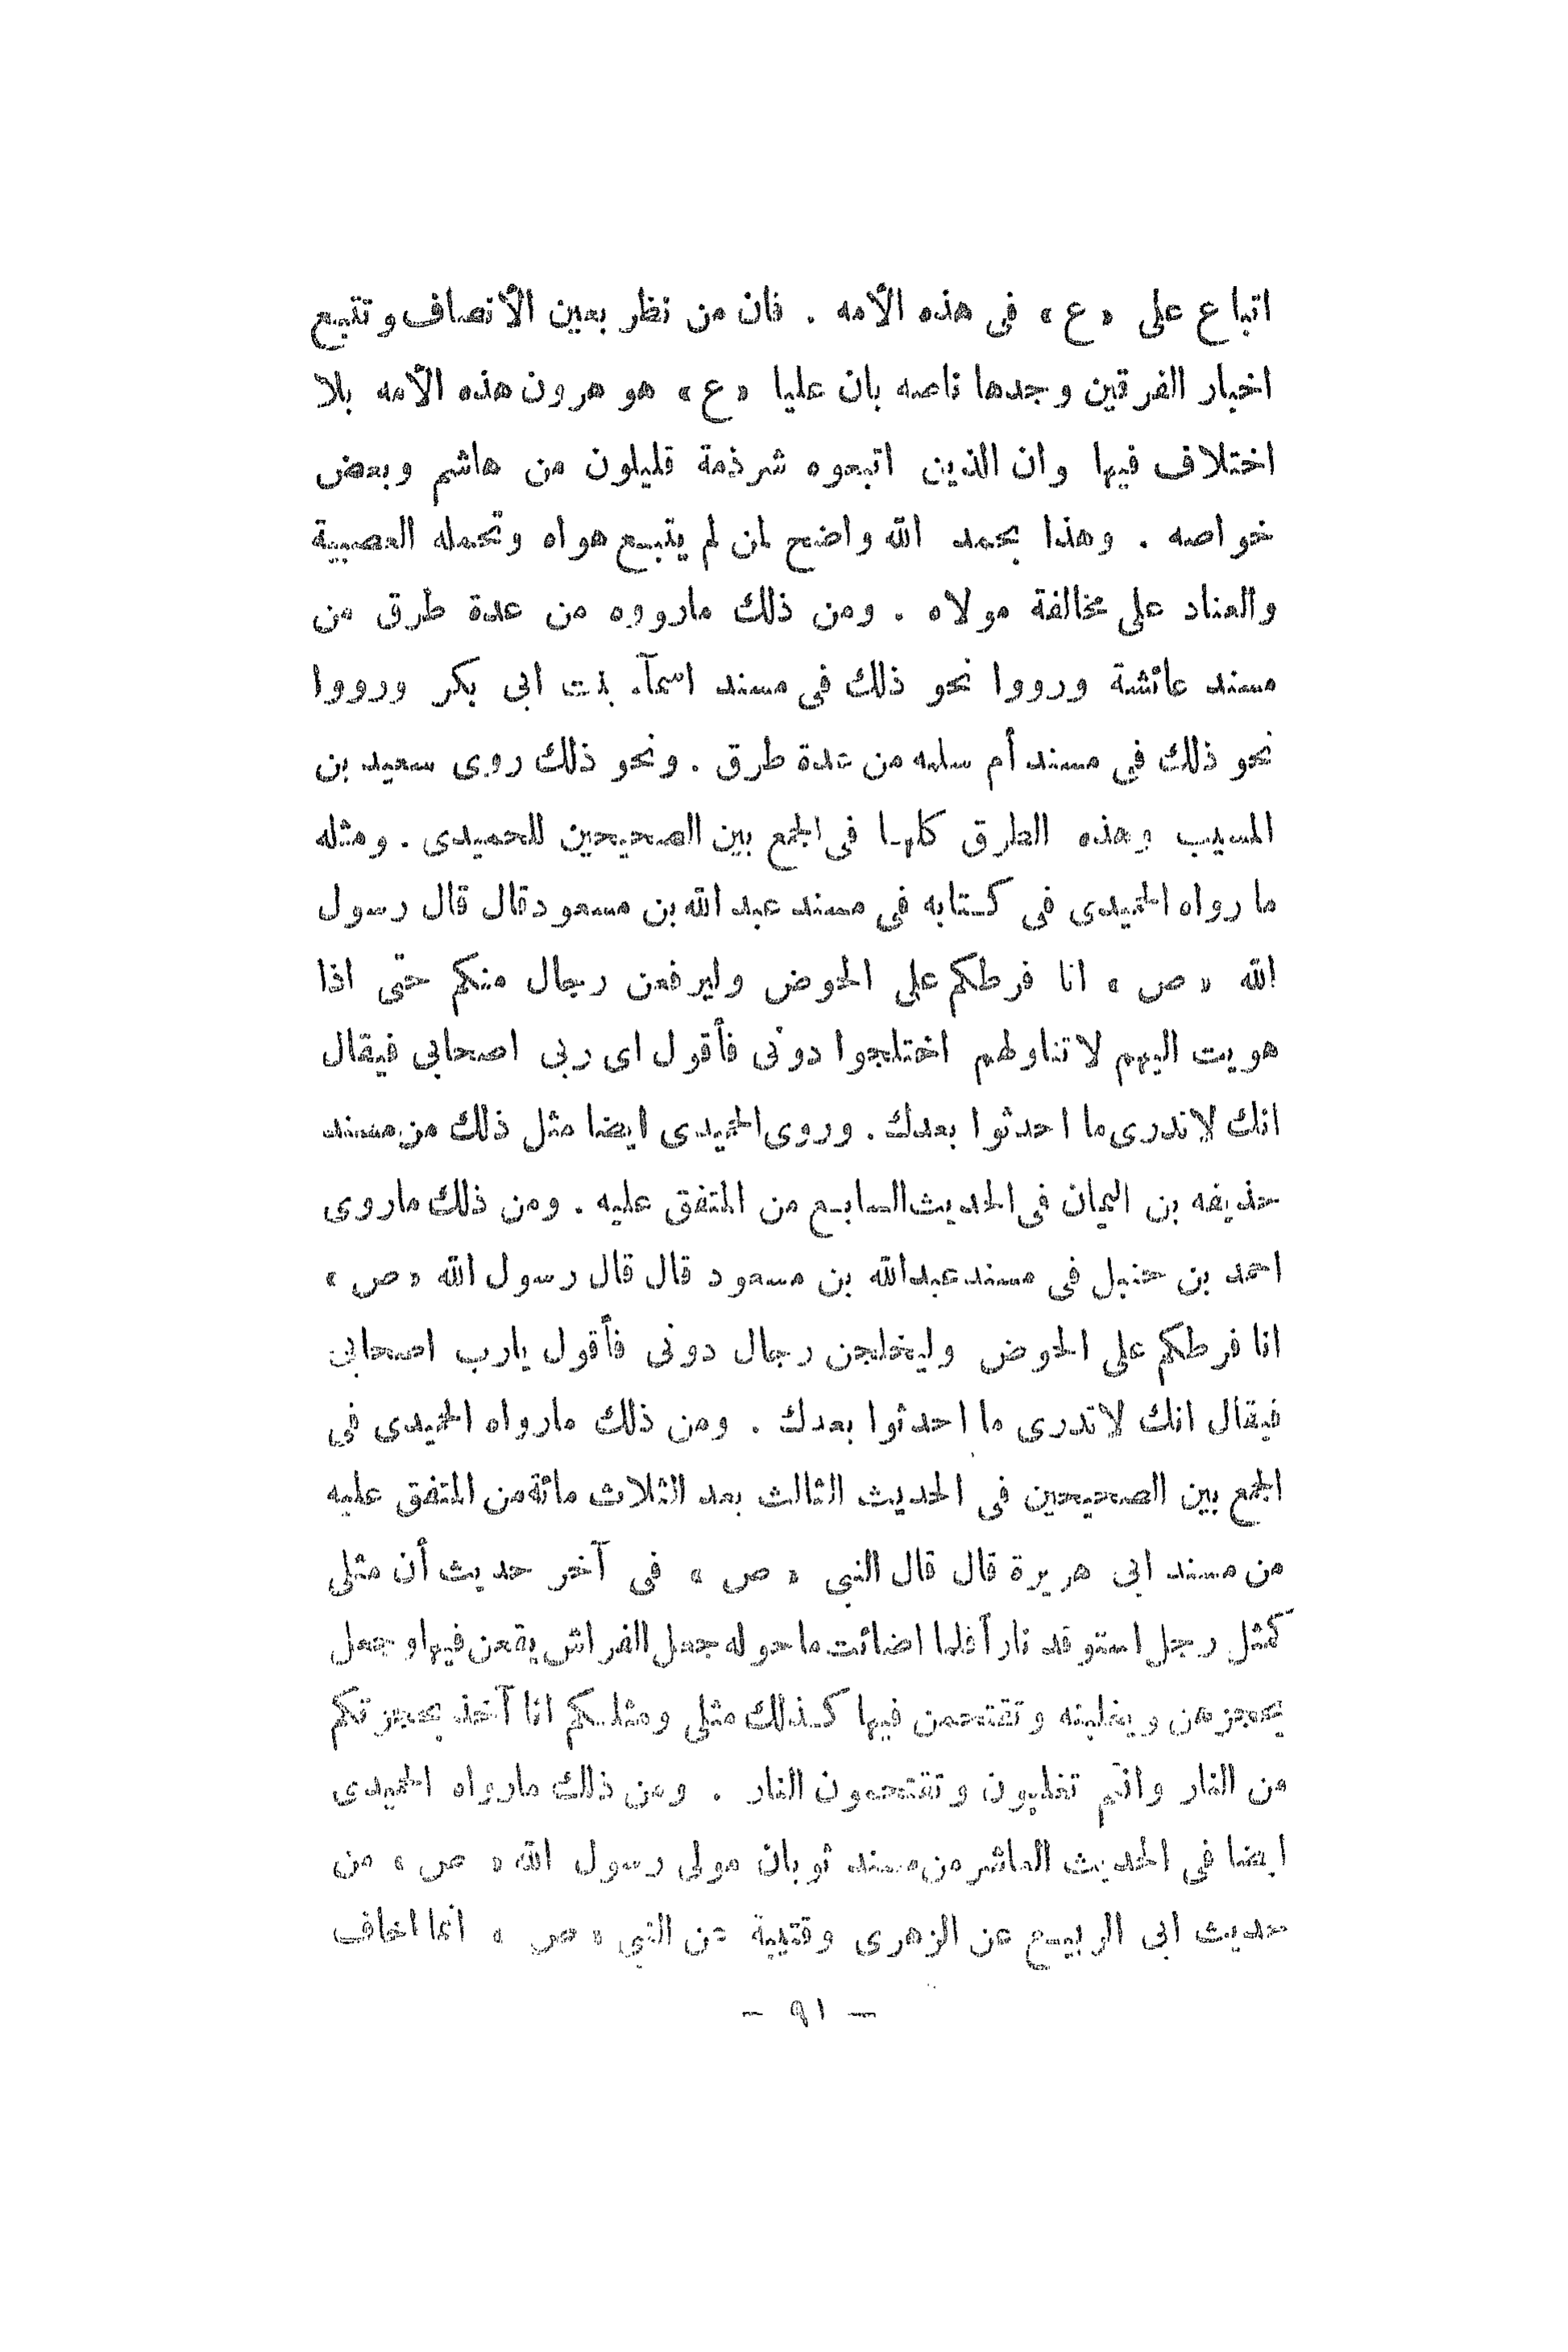 اتباع على «ع» فى هذه الأمه . فان من نظر بعين الأنصاف وتتبع
اخبار الفرقين وجدها ناصه بان عليا «ع» هو هرون هذه الأمه بلا
اختلاف فيها وان الذين اتبعوه شرذمة قليلون من هاشم وبعض
خواصه . وهذا بحمد الله واضح لمن لم يتبع هواه وتحمله العصبية
والعناد على مخالفة مولاه . ومن ذلك مارووه من عدة طرق من
مسند عائشة ورووا نحو ذلك فى مسند اسمآء بنت ابى بكر ورووا
نحو ذلك فى مسند أم سلمه من عدة طرق . ونحو ذلك روى سعيد بن
المسيب وهذه الطرق كلها فى الجمع بين الصحيحين للحميدى . ومثله
ما رواه الحميدى فى كتابه فى مسند عبد الله بن مسعود قال قال رسول
الله «ص» انا فرطكم على الحوض وليرفعن رجال منكم حتى اذا
هويت اليهم لاتناولهم اختلجوا دونى فأقول اى ربى اصحابى فيقال
انك لاتدرى ما احدثوا بعدك . وروى الحميدى ايضا مثل ذلك من مسند
حذيفه بن اليمان فى الحديث السابع من المتفق عليه . ومن ذلك ماروى
احمد بن حنبل فى مسند عبدالله بن مسعود قال قال رسول الله «ص»
انا فرطكم على الحوض وليختلجن رجال دونى فأقول يارب اصحابى
فيقال انك لاتدرى ما احدثوا بعدك . ومن ذلك مارواه الحميدى فى
الجمع بين الصحيحين فى الحديث الثالث بعد الثلاث مائة من المتفق عليه
من مسند ابى هريرة قال قال النبى «ص» فى آخر حديث أن مثلى
كمثل رجل استوقد نارآ فلما اضائت ماحوله جعل الفراش يقعن فيها وجعل
يحجزهن ويغلبنه وتقتحمن فيها كذلك مثلى ومثلكم انا آخذ بحجزتكم
من النار وانتم تغلبون وتقتحمون النار . ومن ذلك مارواه الحميدى
ايضا فى الحديث العاشر من مسند ثوبان مولى رسول الله «ص» من
حديث ابى الربيع عن الزهرى وقتيبة عن النبى «ص» انما اخاف
— ٩١ —